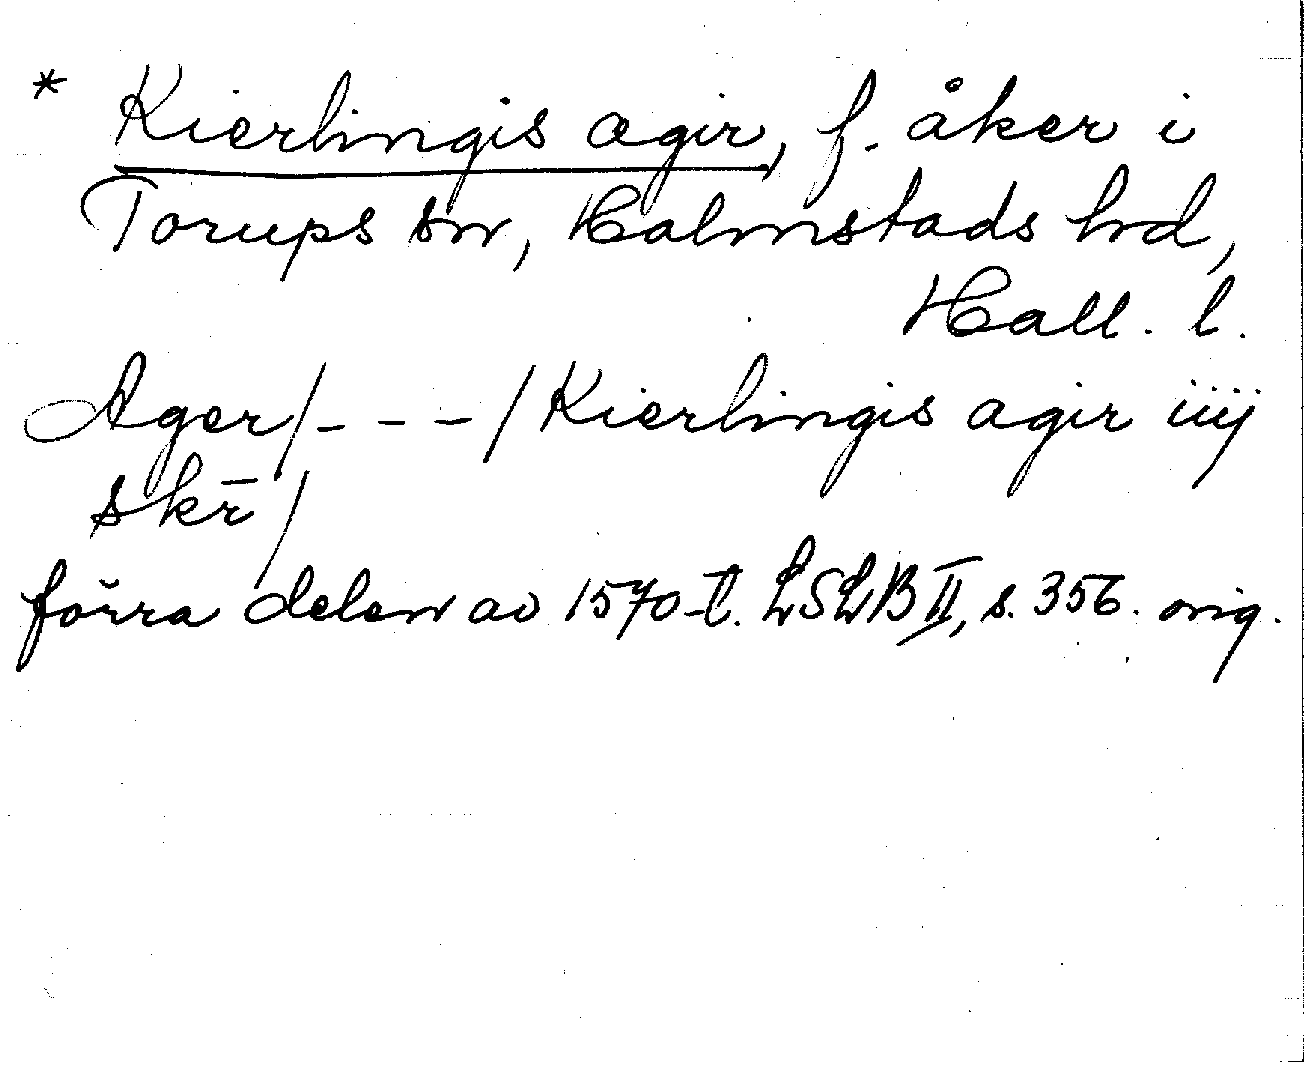 * Kierlingis agir, f. åker i
Torups sn, Halmstads hd,
Hall. l.
Ager/- - -/Kierlingis agir iiij
skr̄/
förra delen av 1570-t. LSLB II, s. 356. orig.